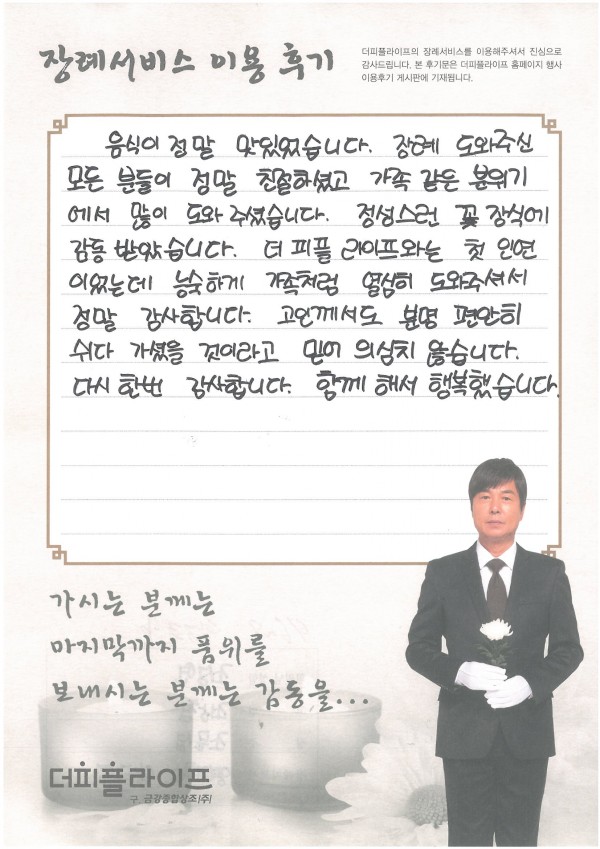 장례서비스 이용 후기
더피플라이프의 장례서비스를 이용해주셔서 진심으로
감사드립니다. 본 후기문은 더피플라이프 홈페이지 행사
이용후기 게시판에 기재됩니다.
음식이 정말 맛있었습니다. 장례 도와주신
모든 분들이 정말 친절하셨고 가족 같은 분위기
에서 많이 도와 주셨습니다. 정성스런 꽃 장식에
감동 받았습니다. 더 피플 라이프와는 첫 인연
이었는데 능숙하게 가족처럼 열심히 도와주셔서
정말 감사합니다. 고인께서도 분명 편안히
쉬다 가셨을 것이라고 믿어 의심치 않습니다.
다시 한번 감사합니다. 함께 해서 행복했습니다.
가시는 분께는
마지막까지 품위를
보내시는 분께는 감동을...
더피플라이프
구. 금강종합상조(주)